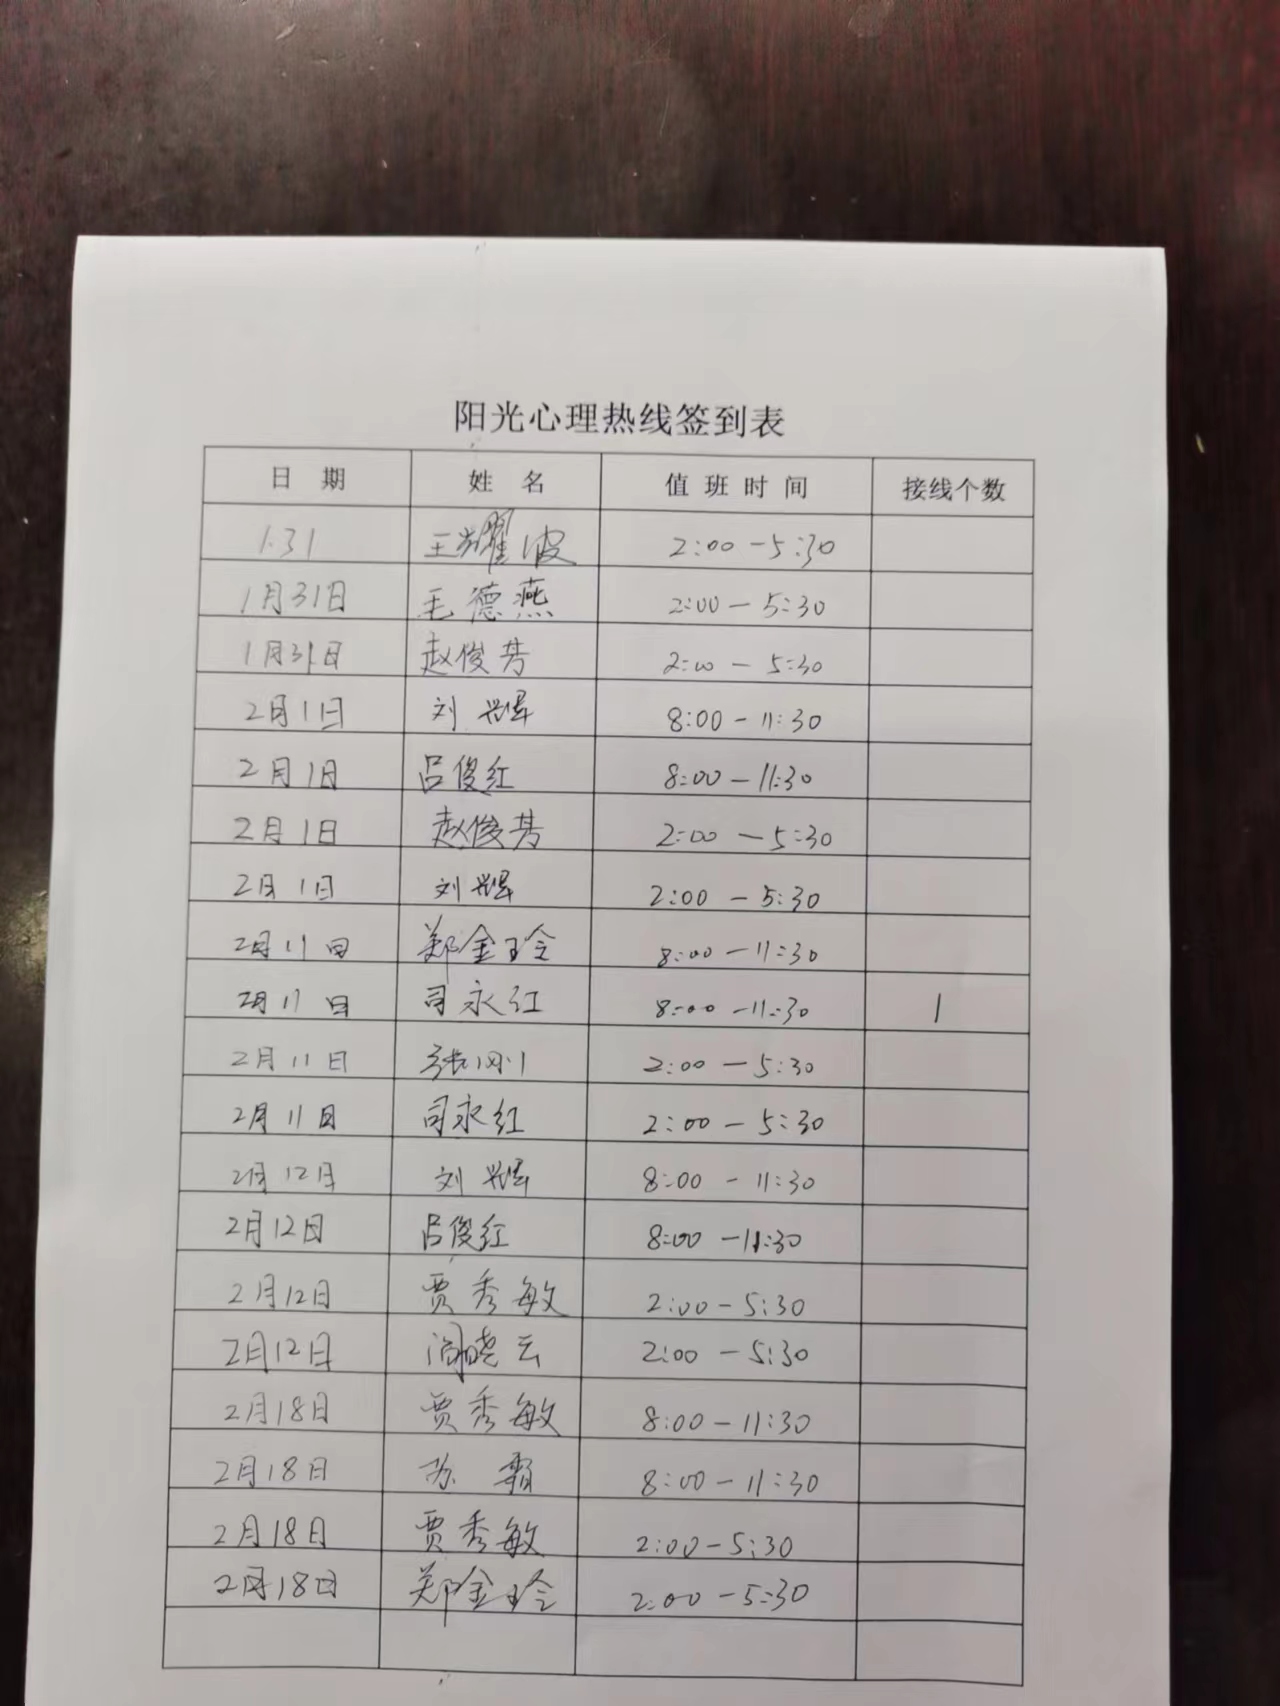 阳光心理热线签到表
日 期 姓 名 值 班 时 间 接线个数
1.31 王耀波 2:00-5:30
1月31日 毛德燕 2:00-5:30
1月31日 赵俊芳 2:00-5:30
2月1日 刘 2:00 8:00-11:30
2月1日 吕俊红 8:00-11:30
2月1日 赵俊芳 2:00-5:30
2月1日 刘 2:00-5:30
2月11日 郑金玲 8:00-11:30
2月11日 司永红 8:00-11:30 1
2月11日 张刚 2:00-5:30
2月11日 司永红 2:00-5:30
2月12日 刘 8:00-11:30
2月12日 吕俊红 8:00-11:30
2月12日 贾秀敏 2:00-5:30
2月12日 阎晓云 2:00-5:30
2月18日 贾秀敏 8:00-11:30
2月18日 8:00-11:30
2月18日 贾秀敏 2:00-5:30
2月18日 郑金玲 2:00-5:30